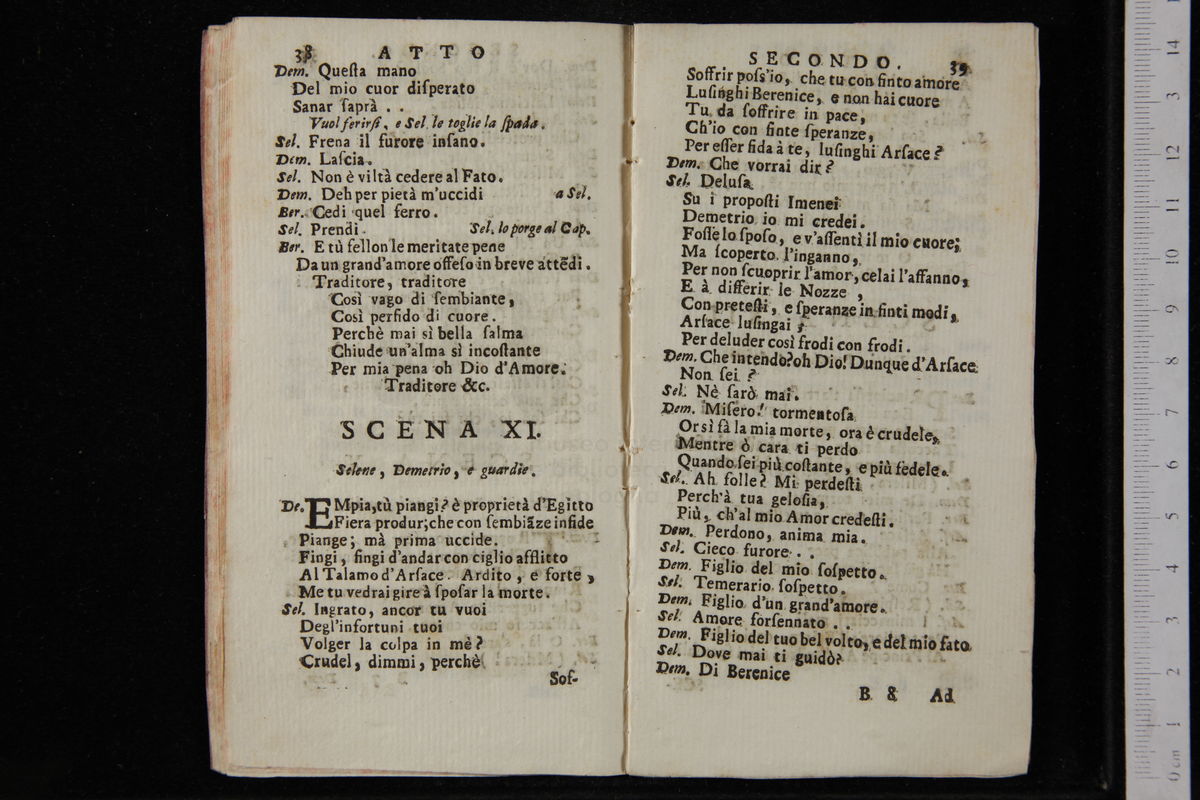 38 ATTO
Dem. Queſta mano
Del mio cuor diſperato
Sanar ſaprà . .
Vuol ferirſi, e Sel. le toglie la ſpada.
Sel. Frena il furore inſano.
Dem. Laſcia.
Sel. Non è viltà cedere al Fato.
Dem. Deh per pietà m'uccidi a Sel.
Ber. Cedi quel ferro.
Sel. Prendi. Sel. lo porge al Cap.
Ber. E tù fellon le meritate pene
Da un grand'amore offeſo in breve attẽdi.
Traditore, traditore
Così vago di ſembiante,
Così perfido di cuore.
Perchè mai sì bella ſalma
Chiude un'alma sì incoſtante
Per mia pena oh Dio d'Amore.
Traditore &c.
SCENA XI.
Selene, Demetrio, e guardie.
De. EMpia, tù piangi? è proprietà d'Egitto
Fiera produr; che con ſembiãze infide
Piange; mà prima uccide.
Fingi, fingi d'andar con ciglio afflitto
Al Talamo d'Arſace. Ardito, e forte,
Me tu vedrai gire à ſpoſar la morte.
Sel. Ingrato, ancor tu vuoi
Degl'infortuni tuoi
Volger la colpa in mè?
Crudel, dimmi, perchè
Sof-
SECONDO. 39
Soffrir poſs'io, che tu con finto amore
Luſinghi Berenice, e non hai cuore
Tu da ſoffrire in pace,
Ch'io con finte ſperanze,
Per eſſer fida à te, luſinghi Arſace?
Dem. Che vorrai dir?
Sel. Deluſa
Su i propoſti Imenei
Demetrio io mi credei.
Foſſe lo ſpoſo, e v'aſſentì il mio cuore;
Ma ſcoperto l'inganno,
Per non ſcuoprir l'amor, celai l'affanno,
E à differir le Nozze,
Con preteſti, e ſperanze in finti modi,
Arſace luſingai;
Per deluder così frodi con frodi.
Dem. Che intendo? oh Dio! Dunque d'Arſace
Non ſei?
Sel. Nè ſarò mai.
Dem. Miſero! tormentoſa
Or sì fà la mia morte, ora è crudele,
Mentre ò cara ti perdo
Quando ſei più coſtante, e più fedele.
Sel. Ah folle! Mi perdeſti
Perch'à tua geloſia,
Più, ch'al mio Amor credeſti.
Dem. Perdono, anima mia.
Sel. Cieco furore . .
Dem. Figlio del mio ſoſpetto.
Sel. Temerario ſoſpetto.
Dem. Figlio d'un grand'amore.
Sel. Amore forſennato . .
Dem. Figlio del tuo bel volto, e del mio fato
Sel. Dove mai ti guidò?
Dem. Di Berenice
B 8 Ad